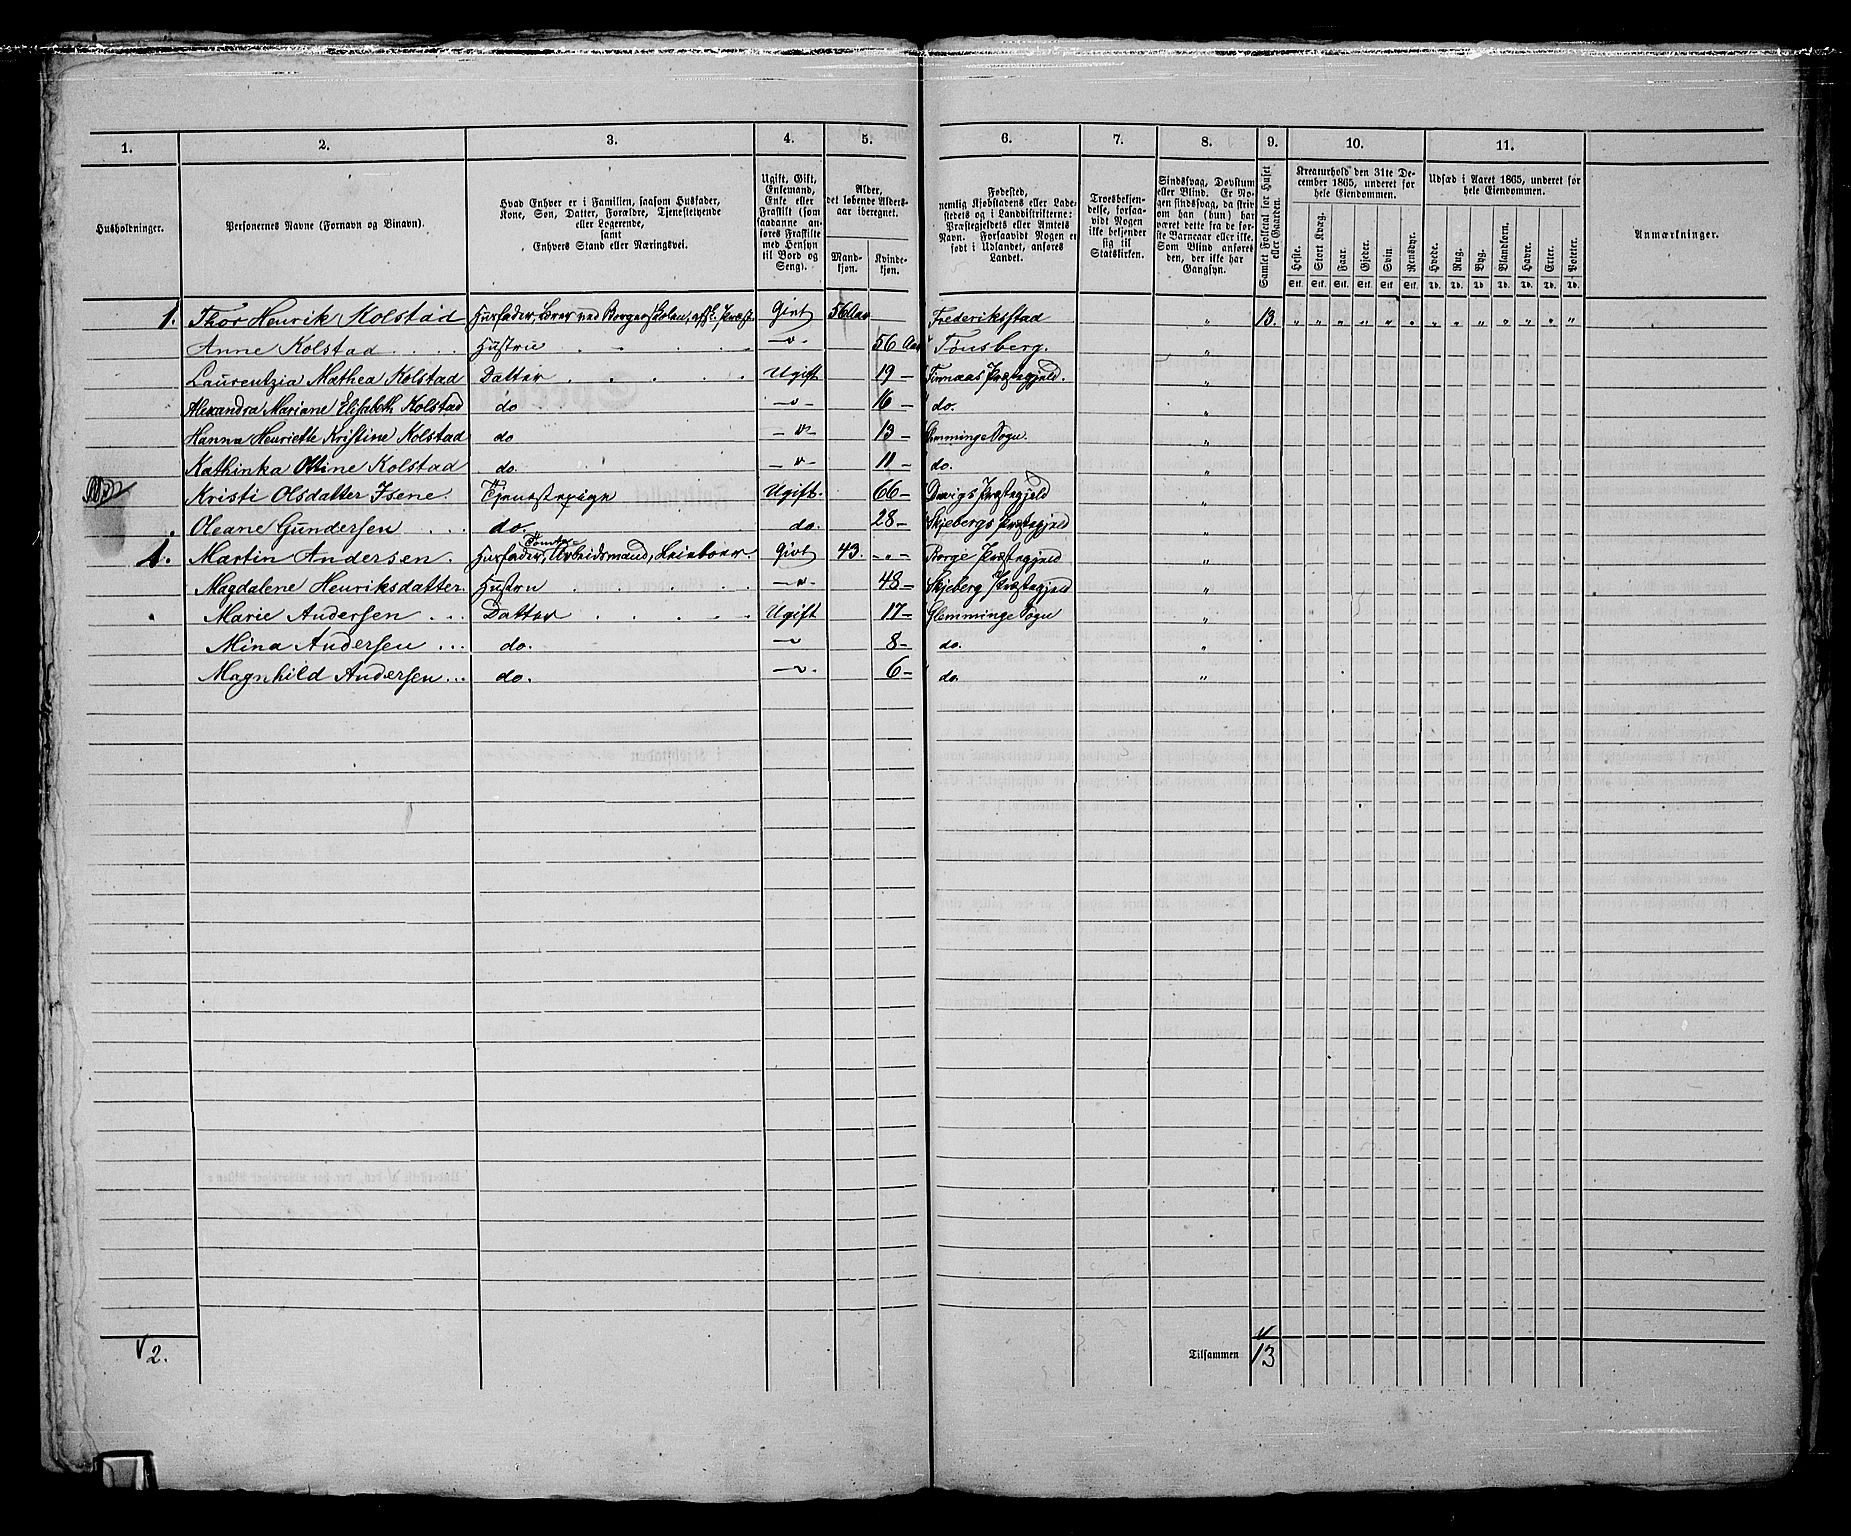 1. 2. 3. 4. 5. 6. 7. 8. 9. 10. 11.
Husholdninger.
Personernes Navne (Fornavn og Binavn).
Hvad Enhver er i Familien, saasom Husfader,
Kone, Søn, Datter, Forældre, Tjenestetyende
eller Logerende,
samt
Enhvers Stand eller Næringsvei.
Ugift, Gift,
Enkemand,
Enke eller
Fraskilt (som
saadanne an-
føres Fraskilte
med Hensyn
til Bord og
Seng).
Alder,
det løbende Alders-
aar iberegnet.
Mand-
kjøn.
Kvinde-
kjøn.
Fødested,
nemlig Kjøbstadens eller Lade-
stedets og i Landdistrikterne:
Præstegjeldets eller Amtets
Navn. Forsaavidt Nogen er
født i Udlandet, anføres
Landet.
Troesbekjen-
delse, forsaa-
vidt Nogen
ikke bekjender
sig til
Statskirken.
Sindssvag, Døvstum
eller Blind. Er No-
gen sindssvag, da skriv
om han (hun) har
været dette fra de før-
ste Barneaar eller ikke.
Som Blind anføres
den, der ikke har
Gangsyn.
Samlet Folketal for Huset
eller Gaarden.
Kreaturhold den 31te De-
cember 1865, underet for
hele Eiendommen.
Heste. Stort Kvæg. Faar. Gjeder. Svin. Rensdyr.
Stk. Stk. Stk. Stk. Stk. Stk.
Udsæd i Aaret 1865, underet for
hele Eiendommen.
Hvede. Rug. Byg. Blandkorn. Havre. Erter. Poteter.
Td. Td. Td. Td. Td. Td. Td.
Anmærkninger.
1. Thor Henrik Kolstad Husfader, Lærer ved Borgerskolen, Givt 56 Aar Frederiksstad " 13. " " " " " " " " " " " " "
Anne Kolstad Hustrue -"- 56 Aar Tønsberg. "
Laurentzia Mathea Kolstad Datter Ugift 19 - Finnaas Præstegjeld. "
Alexandra Mariane Elisabeth Kolstad do -"- 16 - do. "
Hanna Henriette Kristine Kolstad do -"- 13 - Glemminge Sogn. "
Kathinka Ottine Kolstad do. -"- 11 - do. "
Kristi Olsdatter Isene. Tjenestepige Ugift. 66 - Davigs Præstegjeld "
Oleane Gundersen do. do. 28 - Skjebergs Præstegjeld "
1. Martin Andersen. Husfader, Tomte Arbeidsmand, Leieboer Givt 43. - " - Borge Præstegjeld "
Magdalene Henriksdatter. Hustru -"- 48 - Skjeberg Præstegjeld "
Marie Andersen Datter Ugift 17 - Glemminge Sogn "
Mina Andersen do. -"- 8 - do. "
Magnhild Andersen do. -"- 6 - do. "
2.
Tilsammen 13